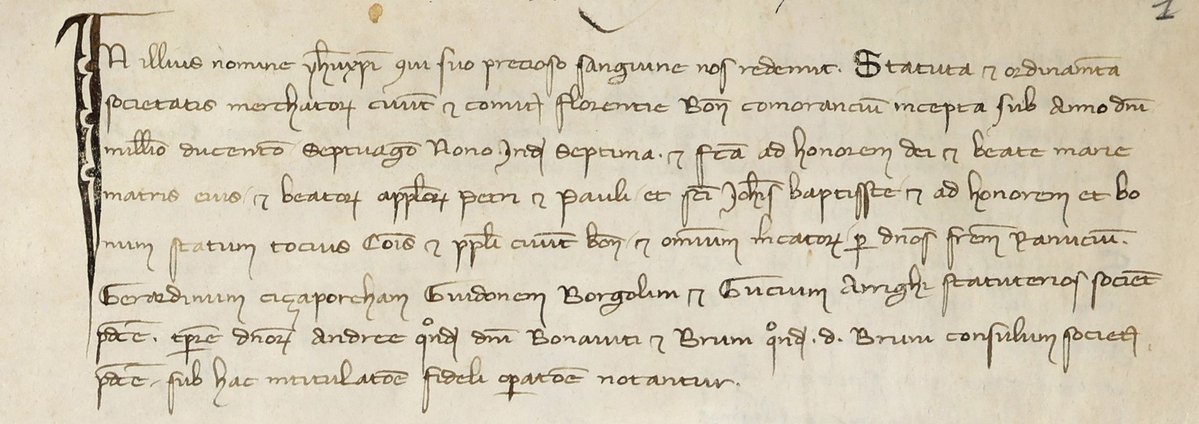 IN illius nomine yhuxpi qui suo precioso sanguine nos redemit. Statuta ⁊ ordinamta
societatis merchatorꝝ civit ⁊ comit florentie Bon comoranciu incepta sub Anno dni
millio ducento Septuago Nono Indi Septima. ⁊ fca ad honorem dei ⁊ beate marie
matris eius ⁊ beatorꝝ applorꝝ Petri ⁊ Pauli et sci Johis baptisste ⁊ ad honorem et bo
num statum tocius Cois ⁊ ppli civit bon ⁊ omnium mcatorꝝ ꝑ dnos frem Ranuciu.
Gerardinum ciçaporcham Guidonem Borgolini ⁊ Guccium Arrighi statuterios societ
pdce. tpre dnorꝝ Andree qondi dni Bonaviti ⁊ Bruni qondi. d. Bruni consulum societ
pdce sub hac intitulatoe fideli opatoe notantur.